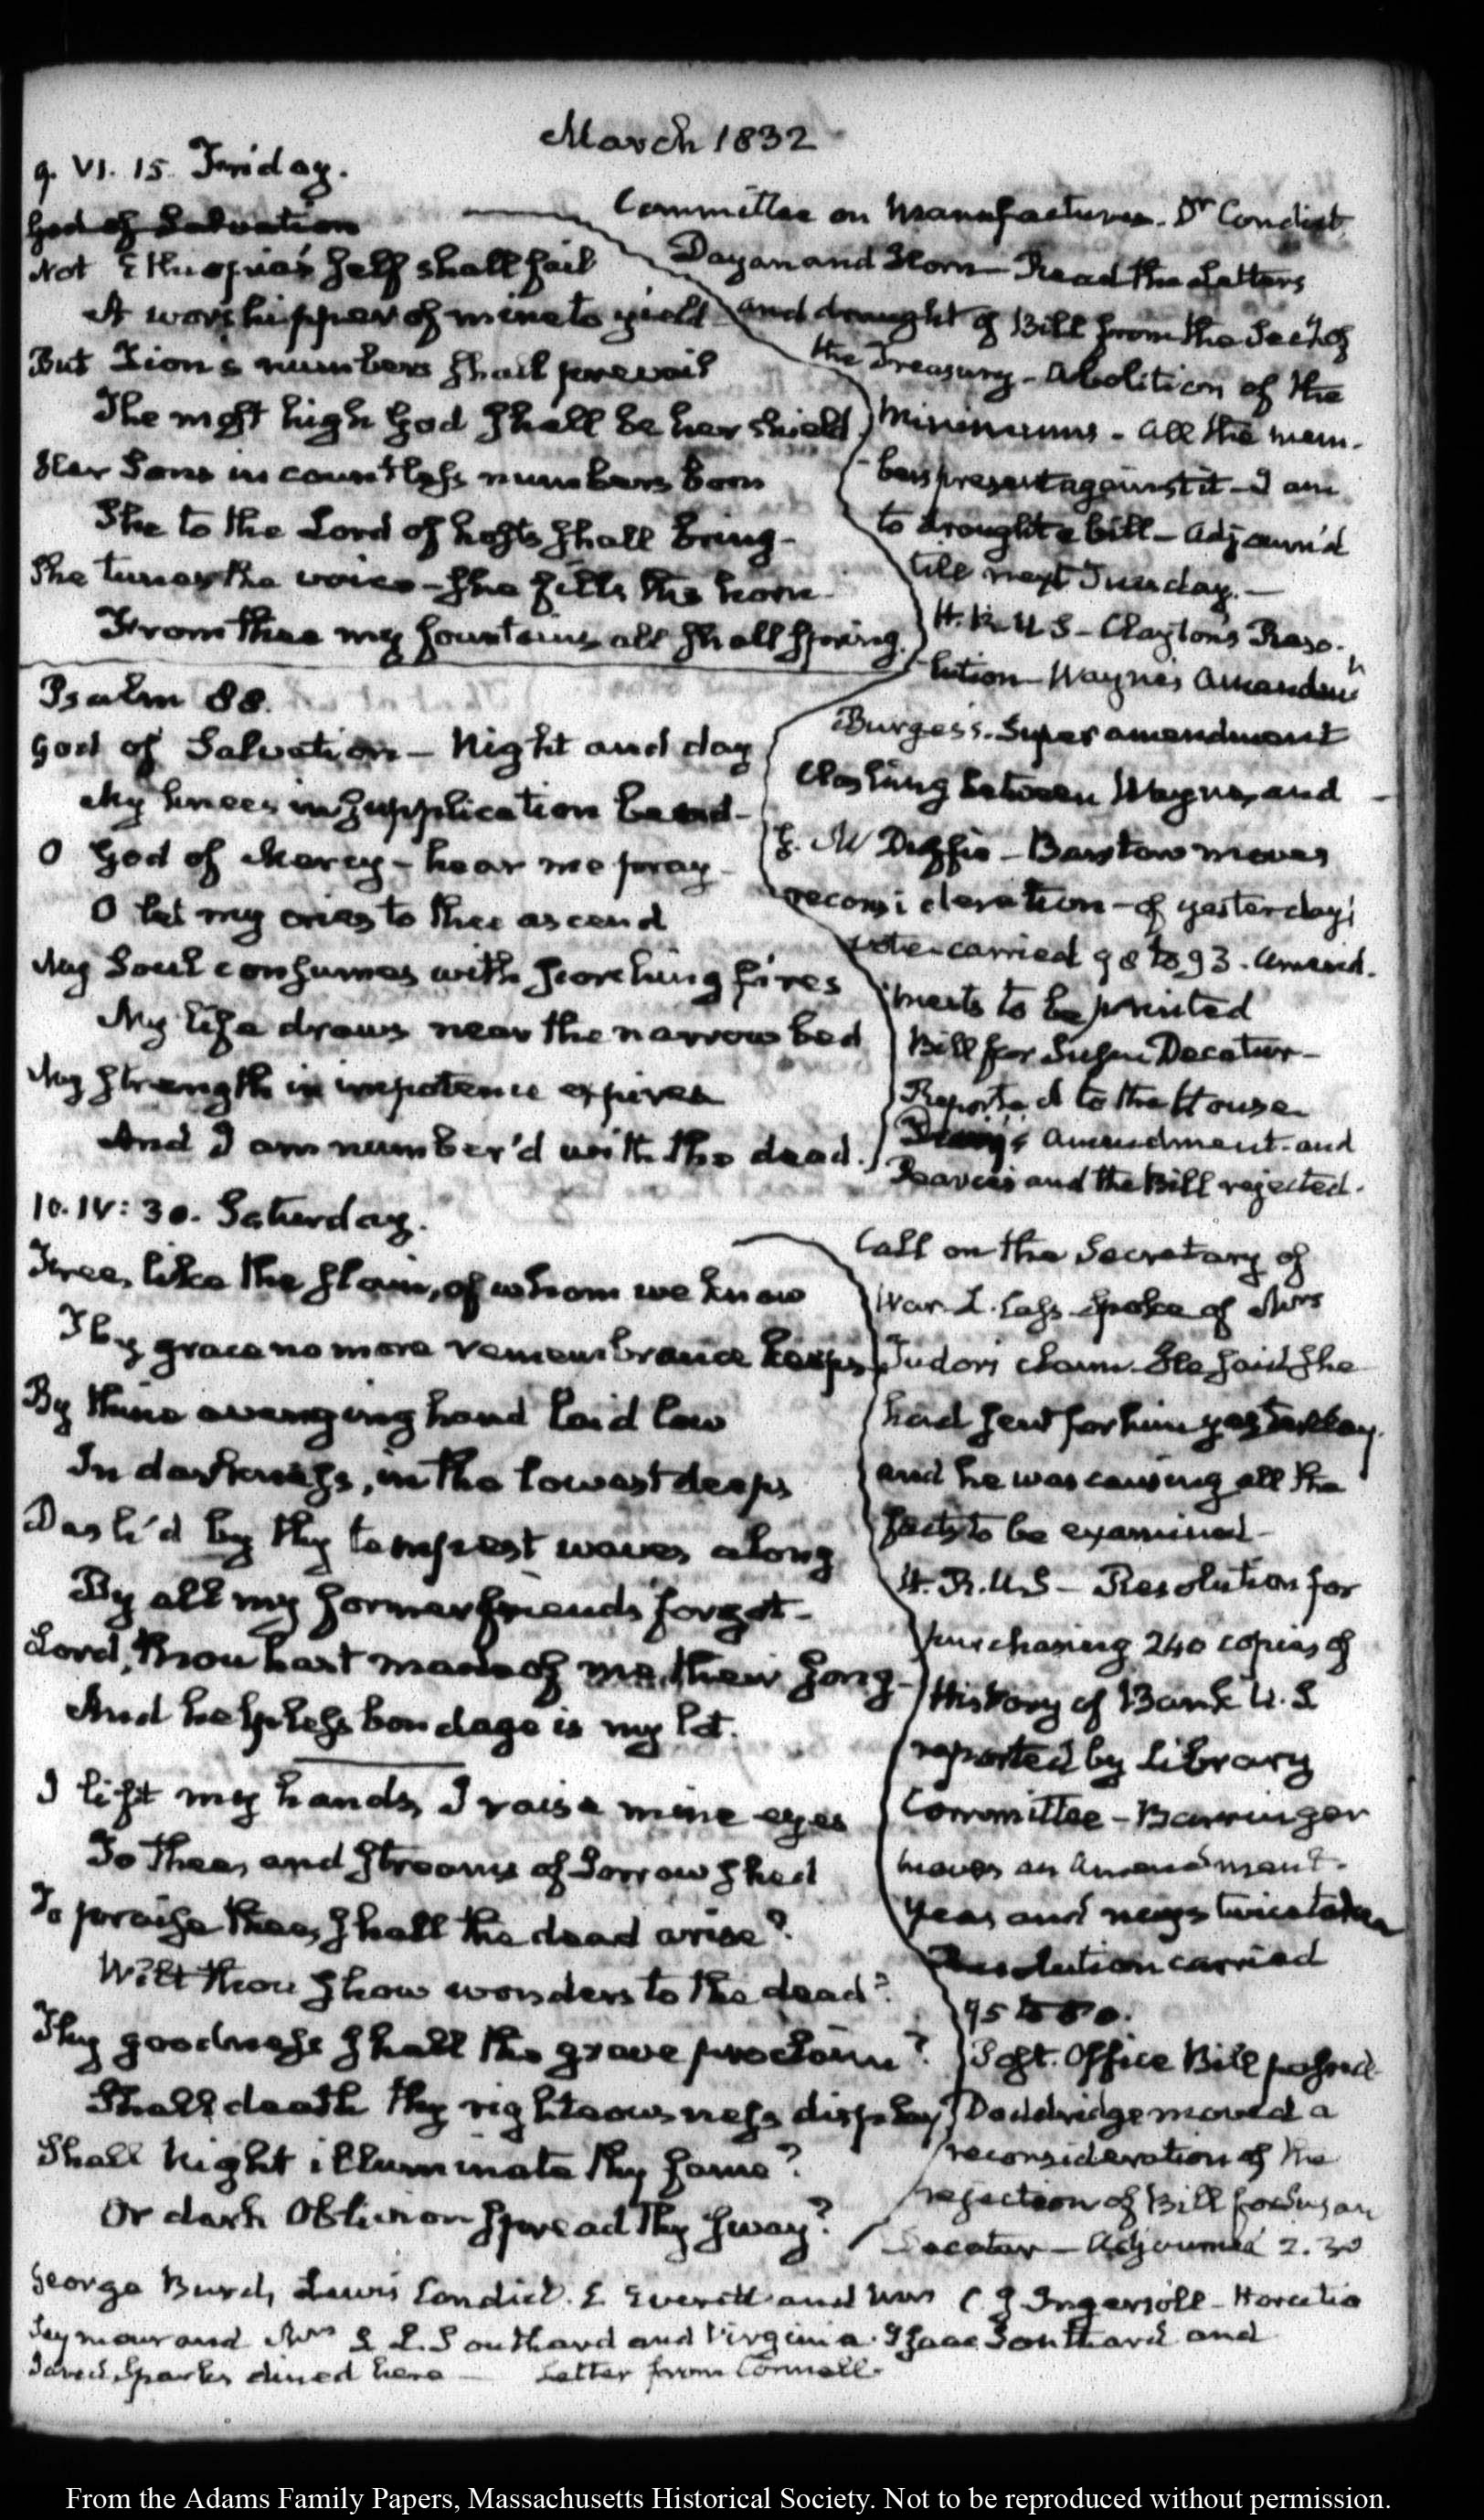 March 1832
9. VI. 15. Friday.
God of Salvation
Not Ethiopia's self shall fail
A worshipper of mine to yield
But Zion's numbers shall prevail
The most high God shall be her shield
Her Sons in countless numbers born
She to the Lord of hosts shall bring-
She tunes the voice - she fills the horn-
From thee my fountains all shall spring.
Psalm 88.
God of Salvation - Night and day
My knees in supplication bend-
O God of Mercy - hear me pray-
O let my cries to thee ascend
My Soul consumes with scorching fires
My life draws near the narrow bed
My strength in impotence expires
And I am number'd with the dead.
Committee on Manufactures. Dr Condict
Dayan and Horn - Read the Letters
and draught of Bill from the Secy of
the Treasury - Abolition of the
Minimums - All the mem-
bers present against it - I am
to draught a bill - Adjourn'd
till next Tuesday. -
H.R.U.S - Clayton's Reso-
lution - Wayne's Amendmt
Burges's. Super amendment
Clashing between Wayne, and
G. McDuffie - Barstow moves
reconsideration - of yesterday's
vote - carried 98 to 93. Amend-
ments to be printed
Bill for Susan Decatur -
Reported to the House
amendment - and
and the Bill rejected.
10. IV: 30. Saturday.
Free, like the slain, of whom we know
Thy grace no more remembrance keeps
By thine avenging hand laid low
In darkness, in the lowest deeps
Dash'd by thy tempest waves along
By all my former friends forgot-
Lord, thou hast made of me, their song-
And helpless bondage is my lot.
I lift my hands, I raise mine eyes
To thee, and streams of Sorrow shed
To praise thee, shall the dead arise?
Wilt thou show wonders to the dead?
Thy goodness shall the grave proclaim?
Shall death thy righteousness display?
Shall Night illuminate thy fame?
Or dark Oblivion spread thy sway?
Call on the Secretary of
War L. Cass - spoke of Mrs
Tudor's claim. He said she
had sent for him yesterday.
and he was causing all the
facts to be examined -
H.R.U.S - Resolution for
purchasing 240 copies of
History of Bank U.S
reported by Library
Committee - Barringer
moves an Amendment.
Yeas and nays twice taken
Resolution carried
95 to 80.
Pat. Office Bill passed
Doddridge moved a
reconsideration of the
rejection of Bill for Susan
Decatur - Adjourned 2.30
George Burd, Lewis Condict. E Everett and Mrs C. J Ingersoll - Horatio
Seymour and Mrs S L. Southard and Virginia. Isaac Southard and
Jared Sparks dined here - Letter from Connell.
From the Adams Family Papers, Massachusetts Historical Society. Not to be reproduced without permission.